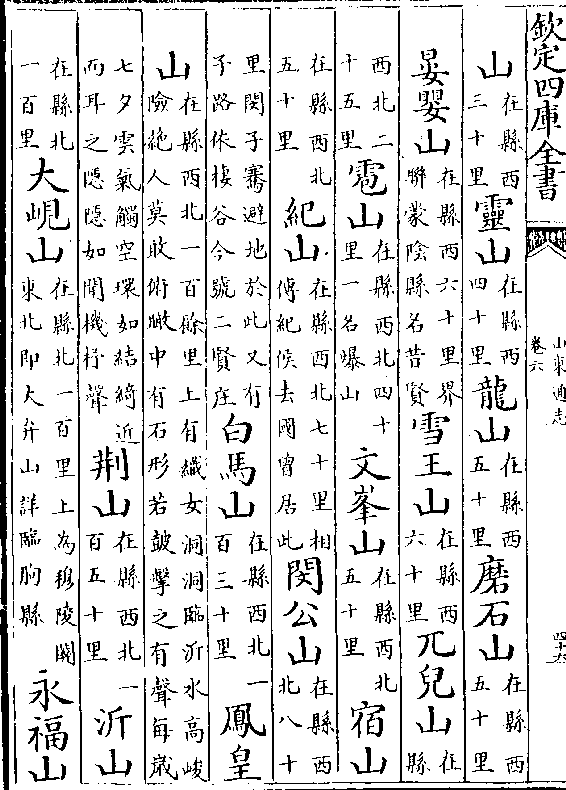 欽定四庫全書
山東通志
卷六
山在縣西三十里靈山在縣西四十里龍山在縣西五十里磨石山在縣西五十里
晏嬰山在縣西六十里界聯蒙陰縣名昔賢雪王山在縣西六十里兀兒山在縣
西北二十五里雹山在縣西北四十里一名爆山文峯山在縣西北五十里宿山
在縣西北五十里紀山在縣西北七十里相傳紀侯去國曾居此閔公山在縣西北八十
里閔子騫避地於此又有子路休棲谷今號二賢庄白馬山在縣西北一百三十里鳳皇
山在縣西北一百餘里上有織女洞洞臨沂水高峻險絶人莫敢俯瞰中有石形若皷擊之有聲每歲
七夕雲氣觸空環如結綺近而耳之隱隱如聞機杼聲荆山在縣西北一百五十里沂山
在縣北一百里大峴山在縣北一百里上為穆陵關東北即大弁山詳臨朐縣永福山